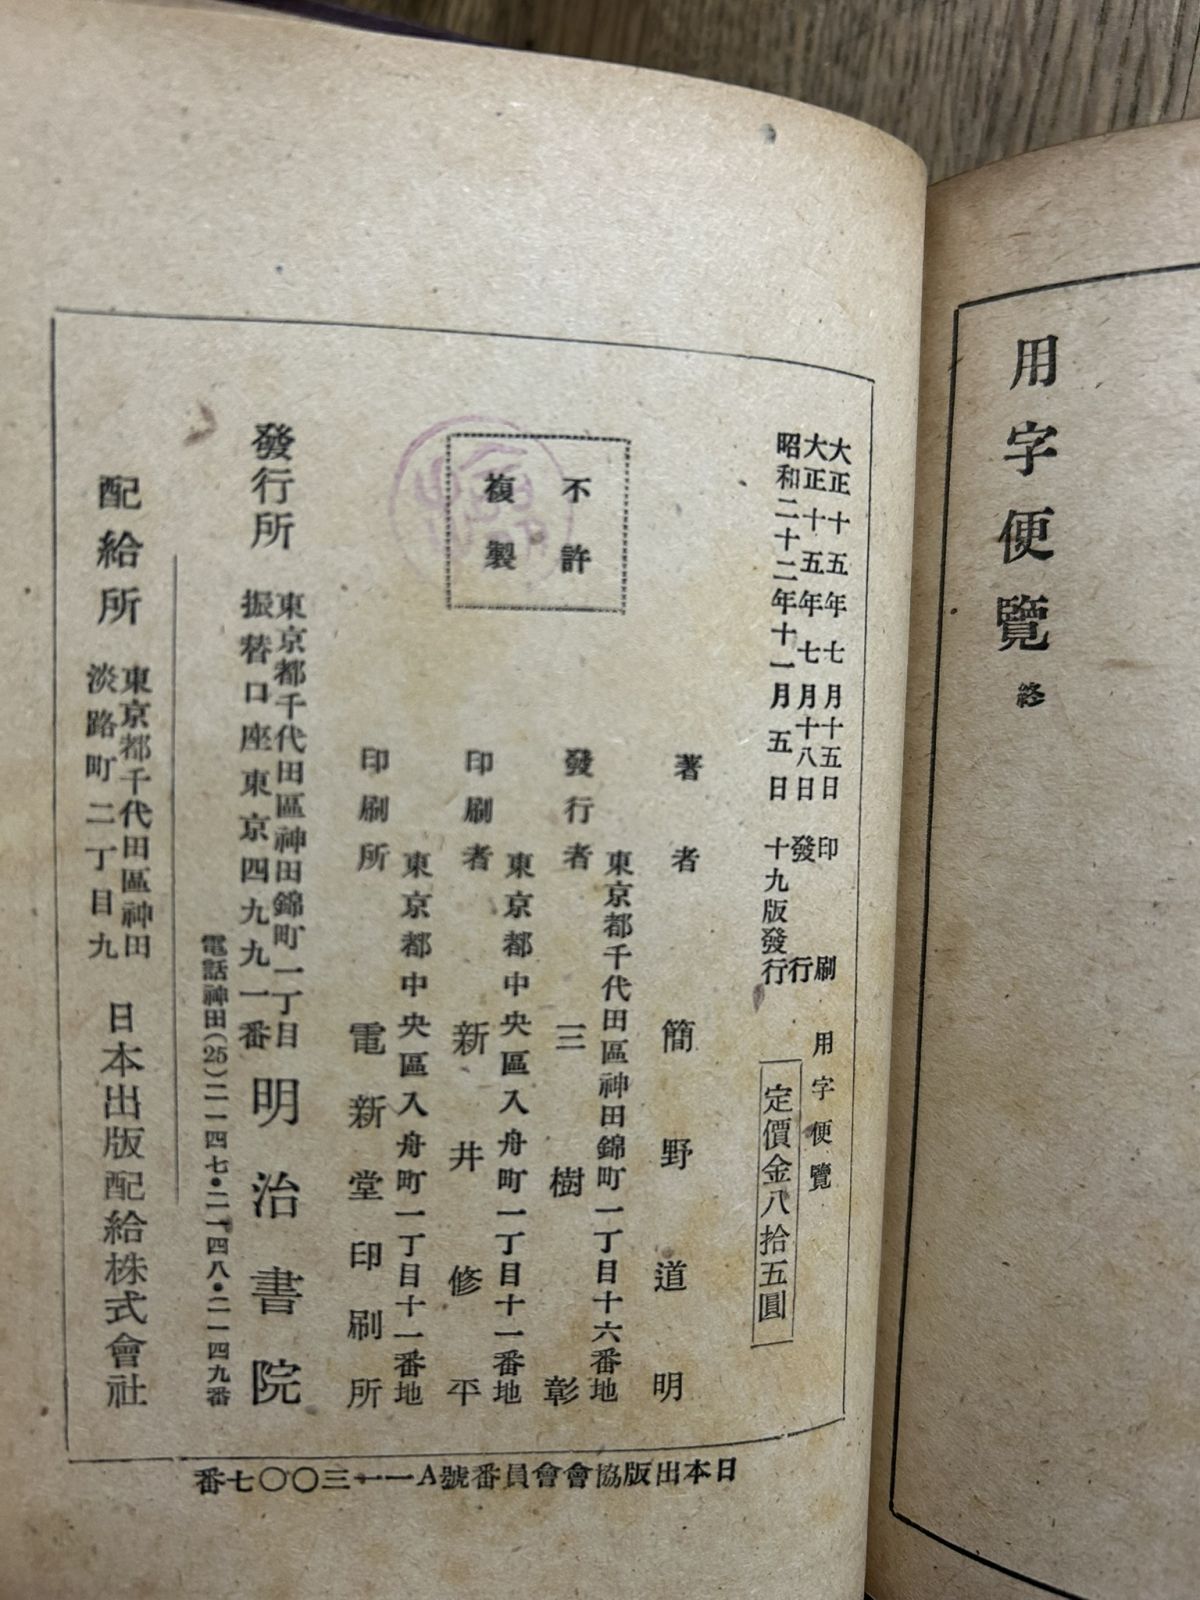 用字便覽 終
大正十五年七月十五日 印刷
大正十五年七月十八日 發行
昭和二十二年十一月五日 十九版發行
用字便覽
定價金八拾五圓
不許
複製
著者 簡野道明
東京都千代田區神田錦町一丁目十六番地
發行者 三樹彰
東京都中央區入舟町一丁目十一番地
印刷者 新井修平
東京都中央區入舟町一丁目十一番地
印刷所 電新堂印刷所
發行所
東京都千代田區神田錦町一丁目
振替口座東京四九九一番
明治書院
電話神田(25)二一四七・二一四八・二一四九番
配給所
東京都千代田區神田
淡路町二丁目九
日本出版配給株式會社
日本出版協會會員番號A一一三〇〇七番